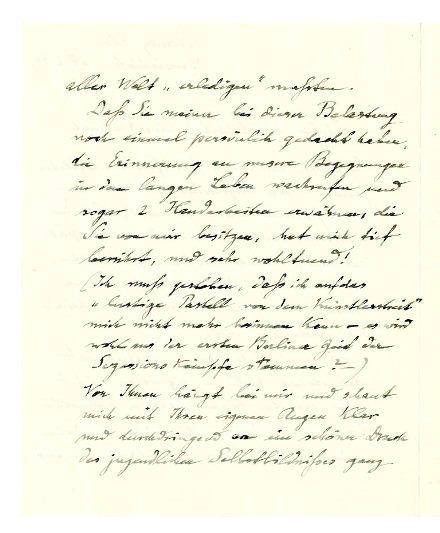 aller Welt „erledigen" mußten.
Daß Sie meiner bei dieser Belastung
noch einmal persönlich gedacht haben,
die Erinnerung an unsere Begegnungen
in dem langen Leben wachrufen und
sogar 2 Handarbeiten erwähnen, die
Sie von mir besitzen, hat mich tief
berührt, und sehr wohltuend!
(Ich muß gestehen, daß ich auf das
„lustige Pastell von dem Künstlerstreit"
mich nicht mehr besinnen kann – es wird
wohl aus der ersten Berliner Zeit der
Sezessions Kämpfe stammen? –)
Von Ihnen hängt bei mir und schaut
mich mit Ihren eigenen Augen klar
und durchdringend an ein schöner Druck
des jugendlichen Selbstbildnisses ganz